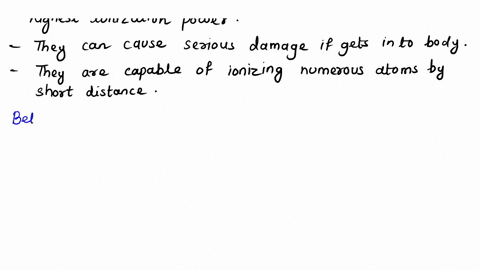 highest ionization power.
- They can cause serious damage if gets in to body.
- They are capable of ionizing numerous atoms by
short distance.
Bel